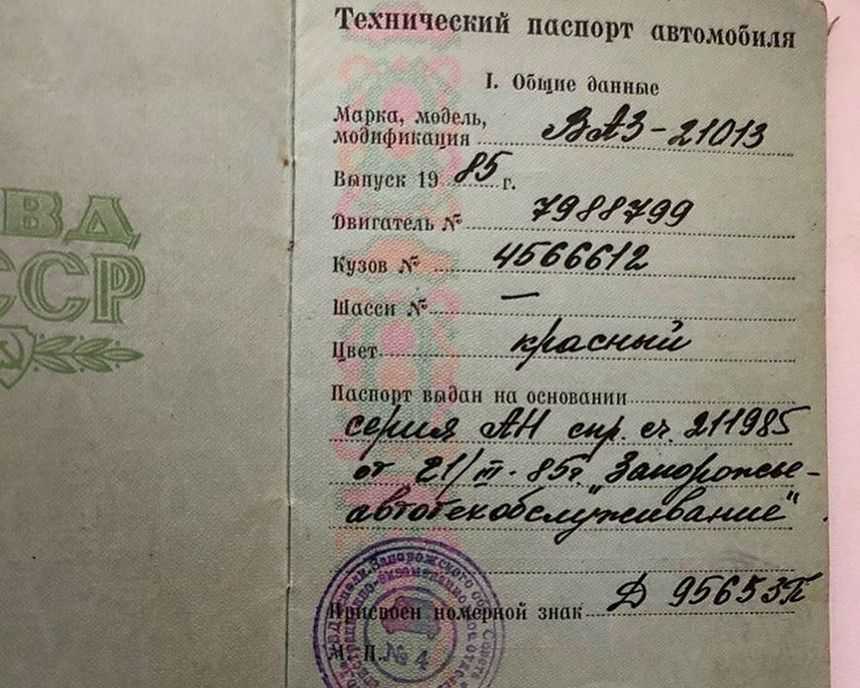 ВД
ССР
Технический паспорт автомобиля
I. Общие данные
Марка, модель,
модификация ВАЗ-21013
Выпуск 1985 г.
Двигатель № 7988799
Кузов № 4566612
Шасси № —
Цвет красный
Паспорт выдан на основании
серия АН спр. сч. 211985
от 21/III-85г. "Запорожье-
автотехобслуживание"
Присвоен номерной знак Д 95653П
М. П.
№ 4